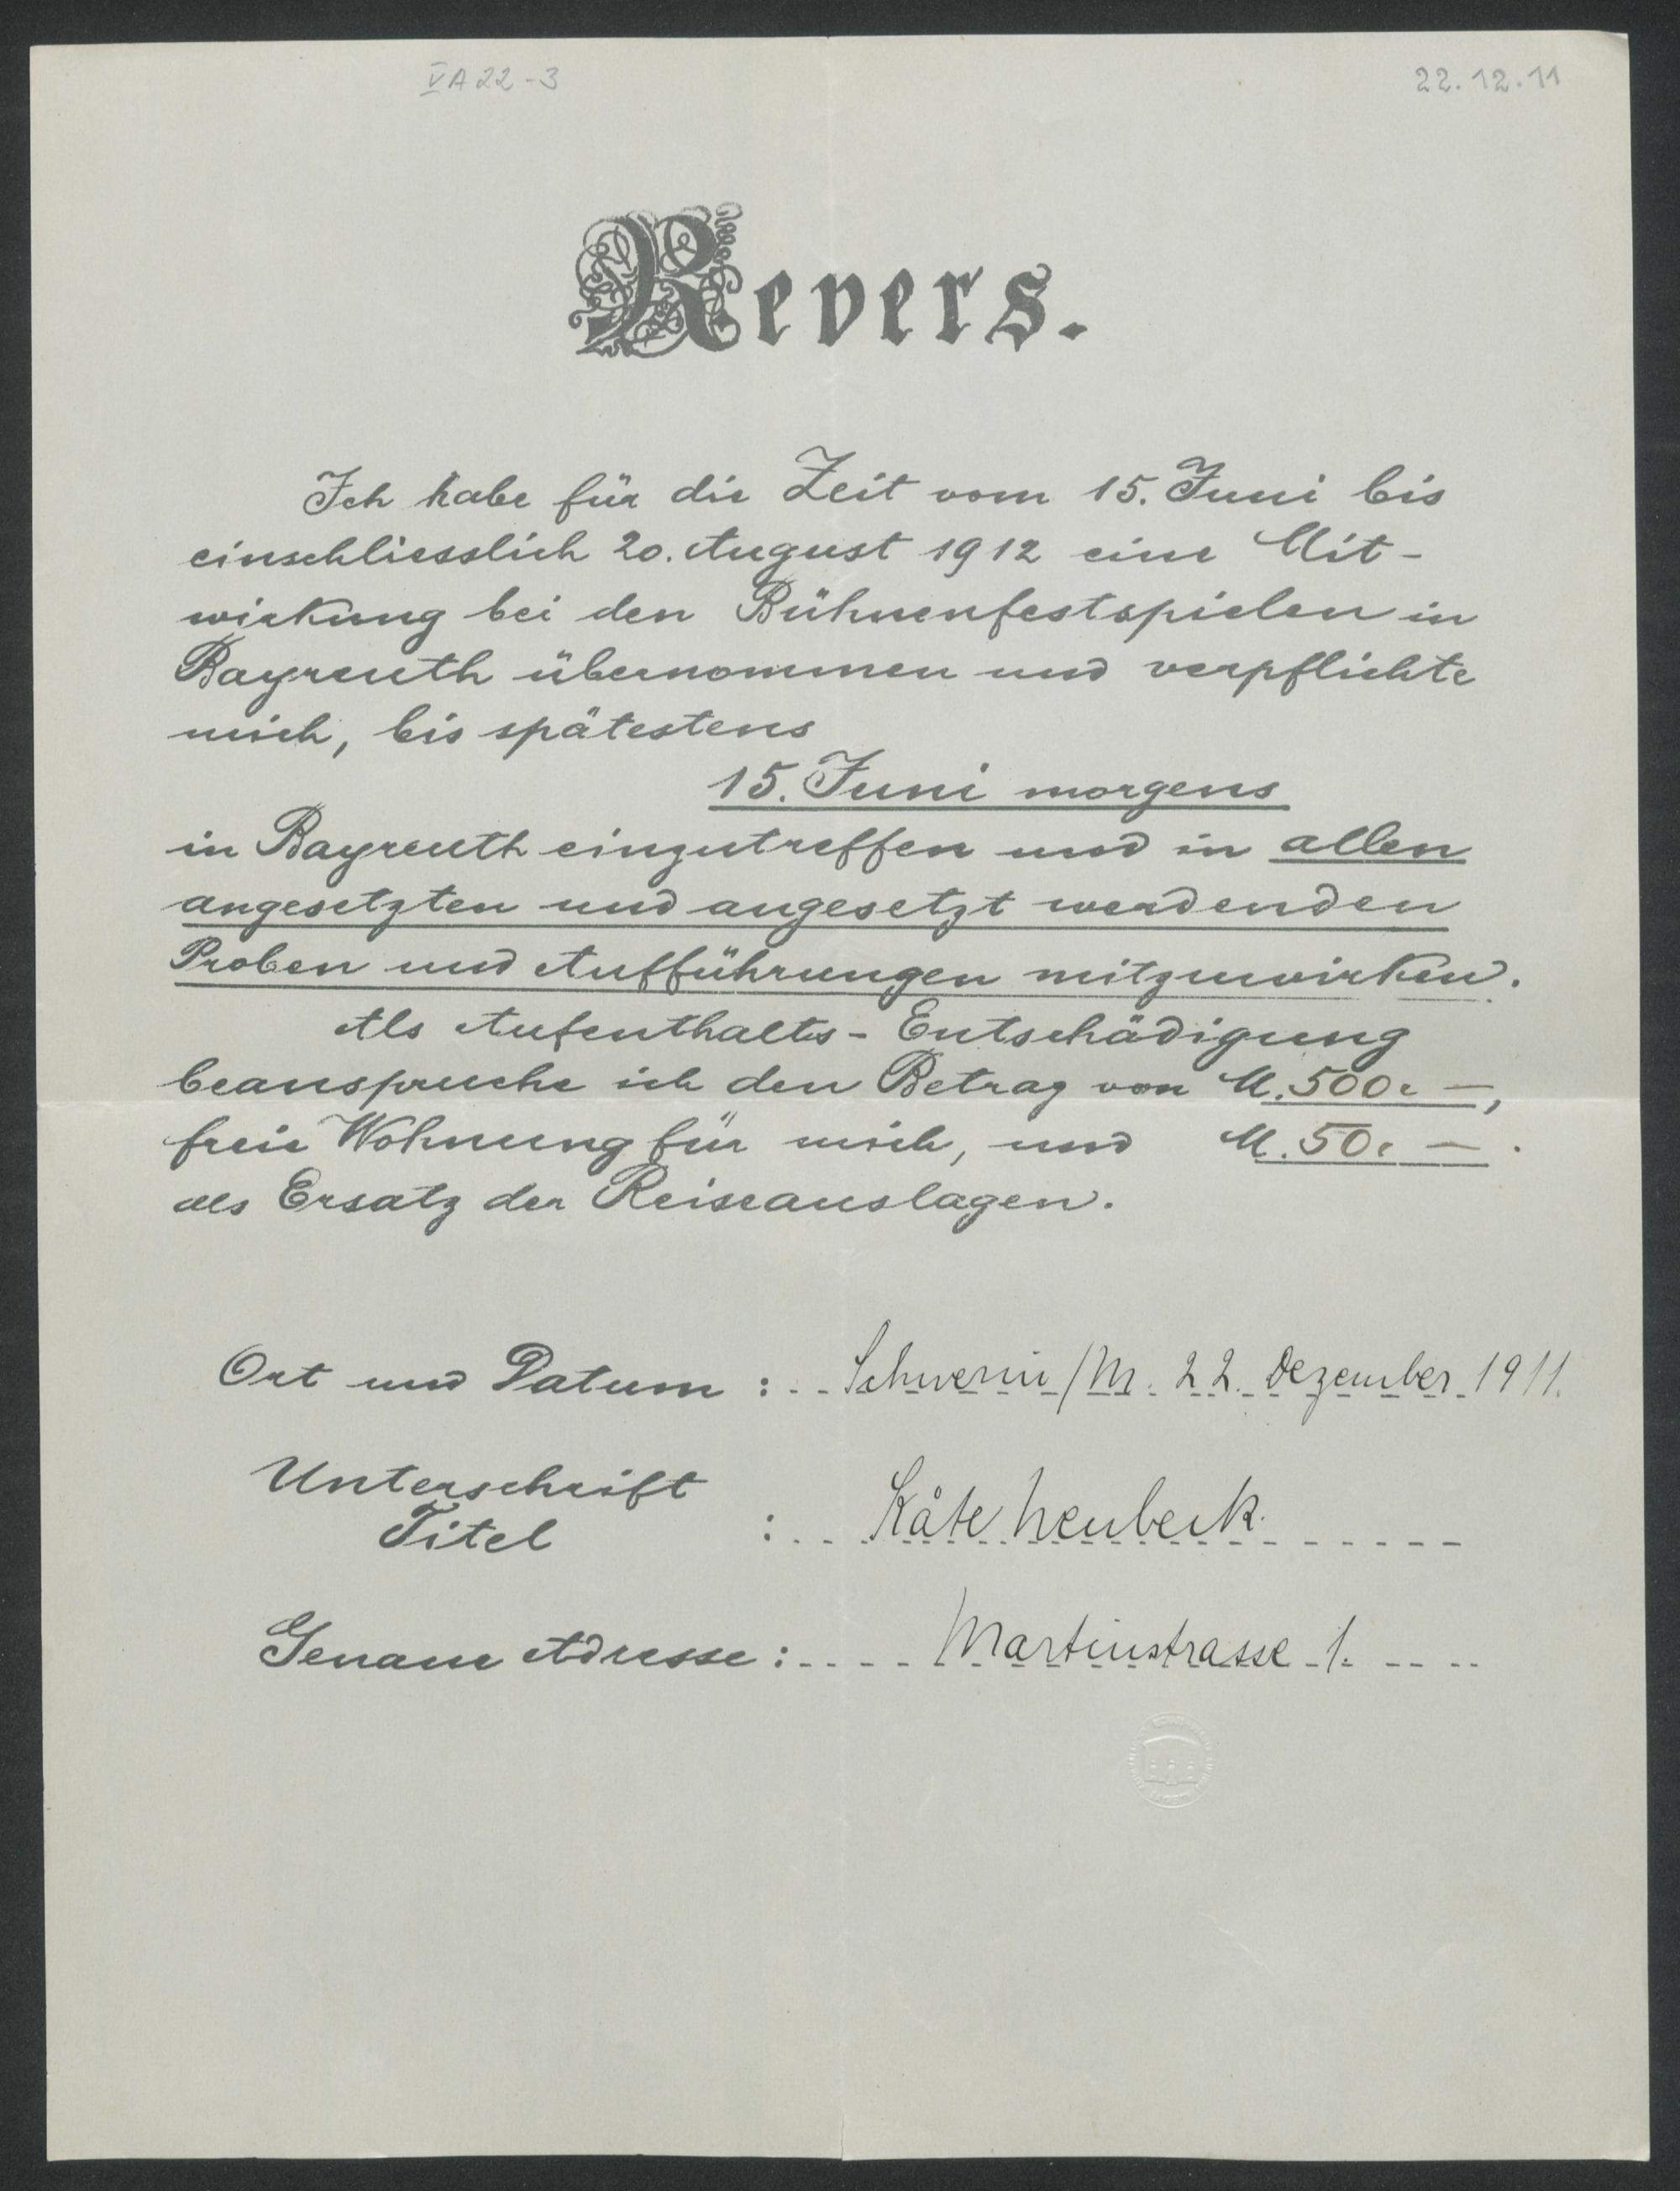 VA22-3
22.12.11
Revers.
Ich habe für die Zeit vom 15. Juni bis
einschliesslich 20. August 1912 eine Mit-
wirkung bei den Bühnenfestspielen in
Bayreuth übernommen und verpflichte
mich, bis spätestens
15. Juni morgens
in Bayreuth einzutreffen und in allen
angesetzten und angesetzt werdenden
Proben und Aufführungen mitzuwirken.
Als Aufenthalts-Entschädigung
beanspruche ich den Betrag von M. 500. —,
freie Wohnung für mich, und M. 50. — .
als Ersatz der Reiseauslagen.
Ort und Datum : Schwerin/M. 22. Dezember 1911.
Unterschrift
Titel : Käte Neubeck.
Genaue Adresse : Martinstrasse 1.